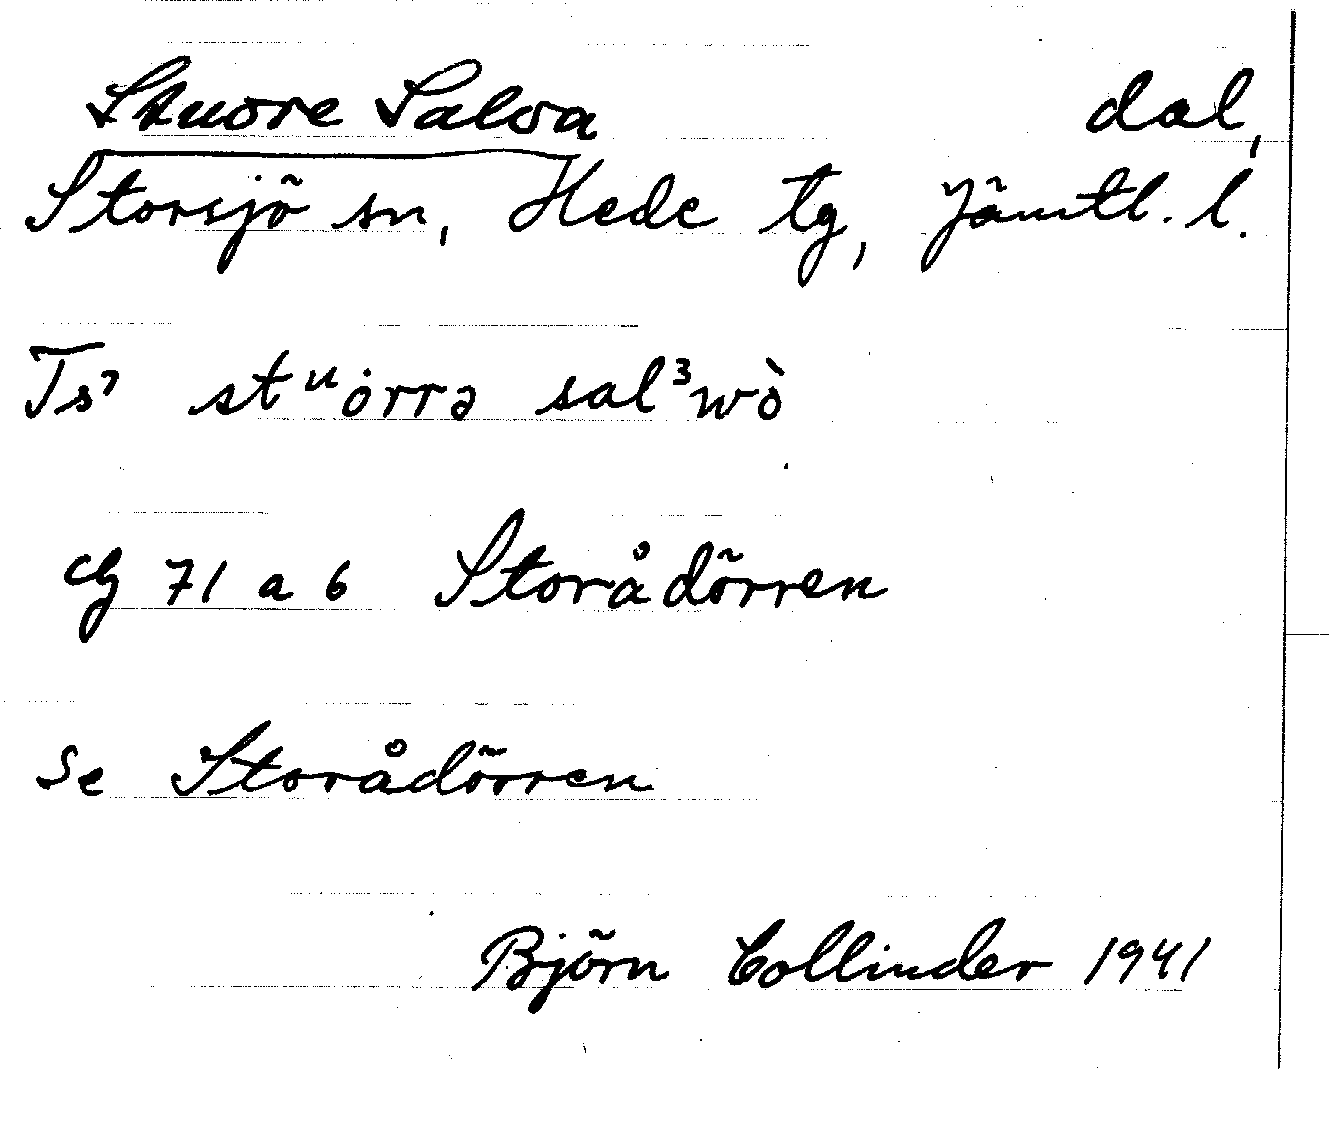 Stuore Salva dal,
Storsjö sn, Hede tg, Jämtl. l.
Ts⁷ stᵘȯrrə sal³wȯ̀
Cg 71 a 6 Storådörren
Se Storådörren
Björn Collinder 1941